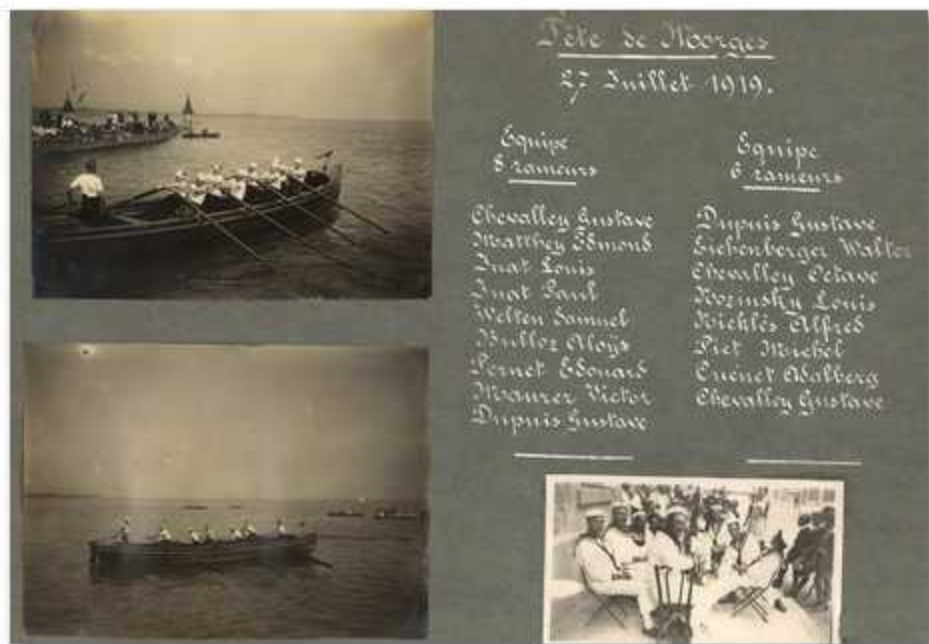 Fête de Morges
27 Juillet 1919.
Equipe
8 rameurs
Chevalley Gustave
Matthey Edmond
Inat Louis
Inat Paul
Welten Samuel
Bulloz Aloys
Pernet Edouard
Maurer Victor
Dupuis Gustave
Equipe
6 rameurs
Dupuis Gustave
Eichenberger Walter
Chevalley Octave
Kozinsky Louis
Nicklés Alfred
Piet Michel
Cuénet Adalberg
Chevalley Gustave